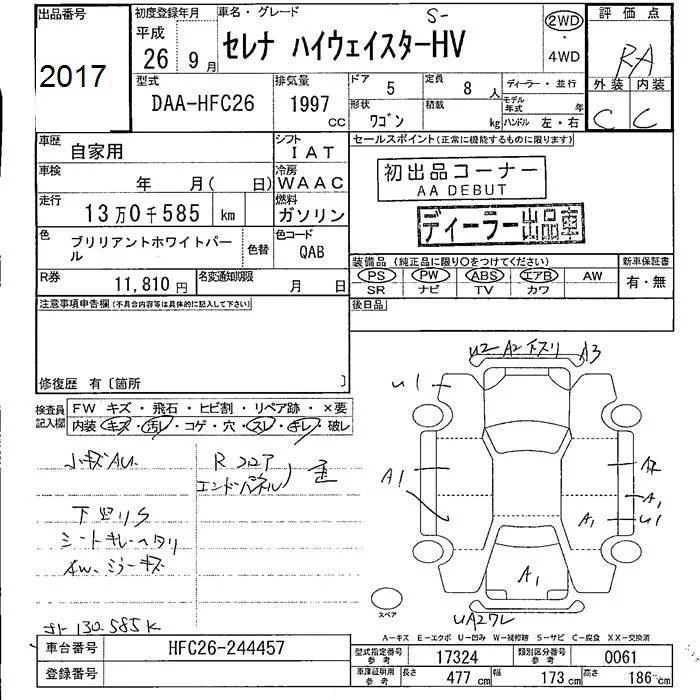 出品番号
2017
初度登録年月
平成
26 9月
車名・グレード
S-
セレナ ハイウェイスターHV
2WD
・
4WD
評価点
RA
外装 内装
C C
型式
DAA-HFC26
排気量
1997
CC
ドア 5
定員 8 人
ディーラー・並行
形状 ワゴン
積載 kg
モデル年式 年
ハンドル 左・右
車歴 自家用
シフト IAT
車検 年 月( 日)
冷房 WAAC
走行 13万0千585 km
燃料 ガソリン
色 ブリリアントホワイトパール
色替
色コード QAB
R券 11,810 円
名変通知期限 月 日
セールスポイント(正常に機能するものに限ります)
初出品コーナー
AA DEBUT
ディーラー出品車
装備品(純正品に限り〇をつけてください)
新車保証書
PS PW ABS エアB AW
SR ナビ TV カワ
有・無
後日品
注意事項申告欄(不具合内容等は具体的に記入して下さい)
修復歴 有〔箇所 〕
検査員記入欄
FW キズ・飛石・ヒビ割・リペア跡・×要
内装 キズ・汚レ・コゲ・穴・スレ・キレ・破レ
小キズAU
R フロア
エンドパネル
下廻りS
シートキレ・ヘタリ
AW、ミラーキズ
130,585K
U2 A2 A3
U1
A1
A2
A1
A1 U1
A1
UA2ワレ
スペア
A-キズ E-エクボ U-凹み W-補修跡 S-サビ C-腐食 XX-交換済
車台番号 HFC26-244457
登録番号
型式指定番号 参考 17324
類別区分番号 参考 0061
車庫証明用 参考
長さ 477 cm
幅 173 cm
高さ 186 cm